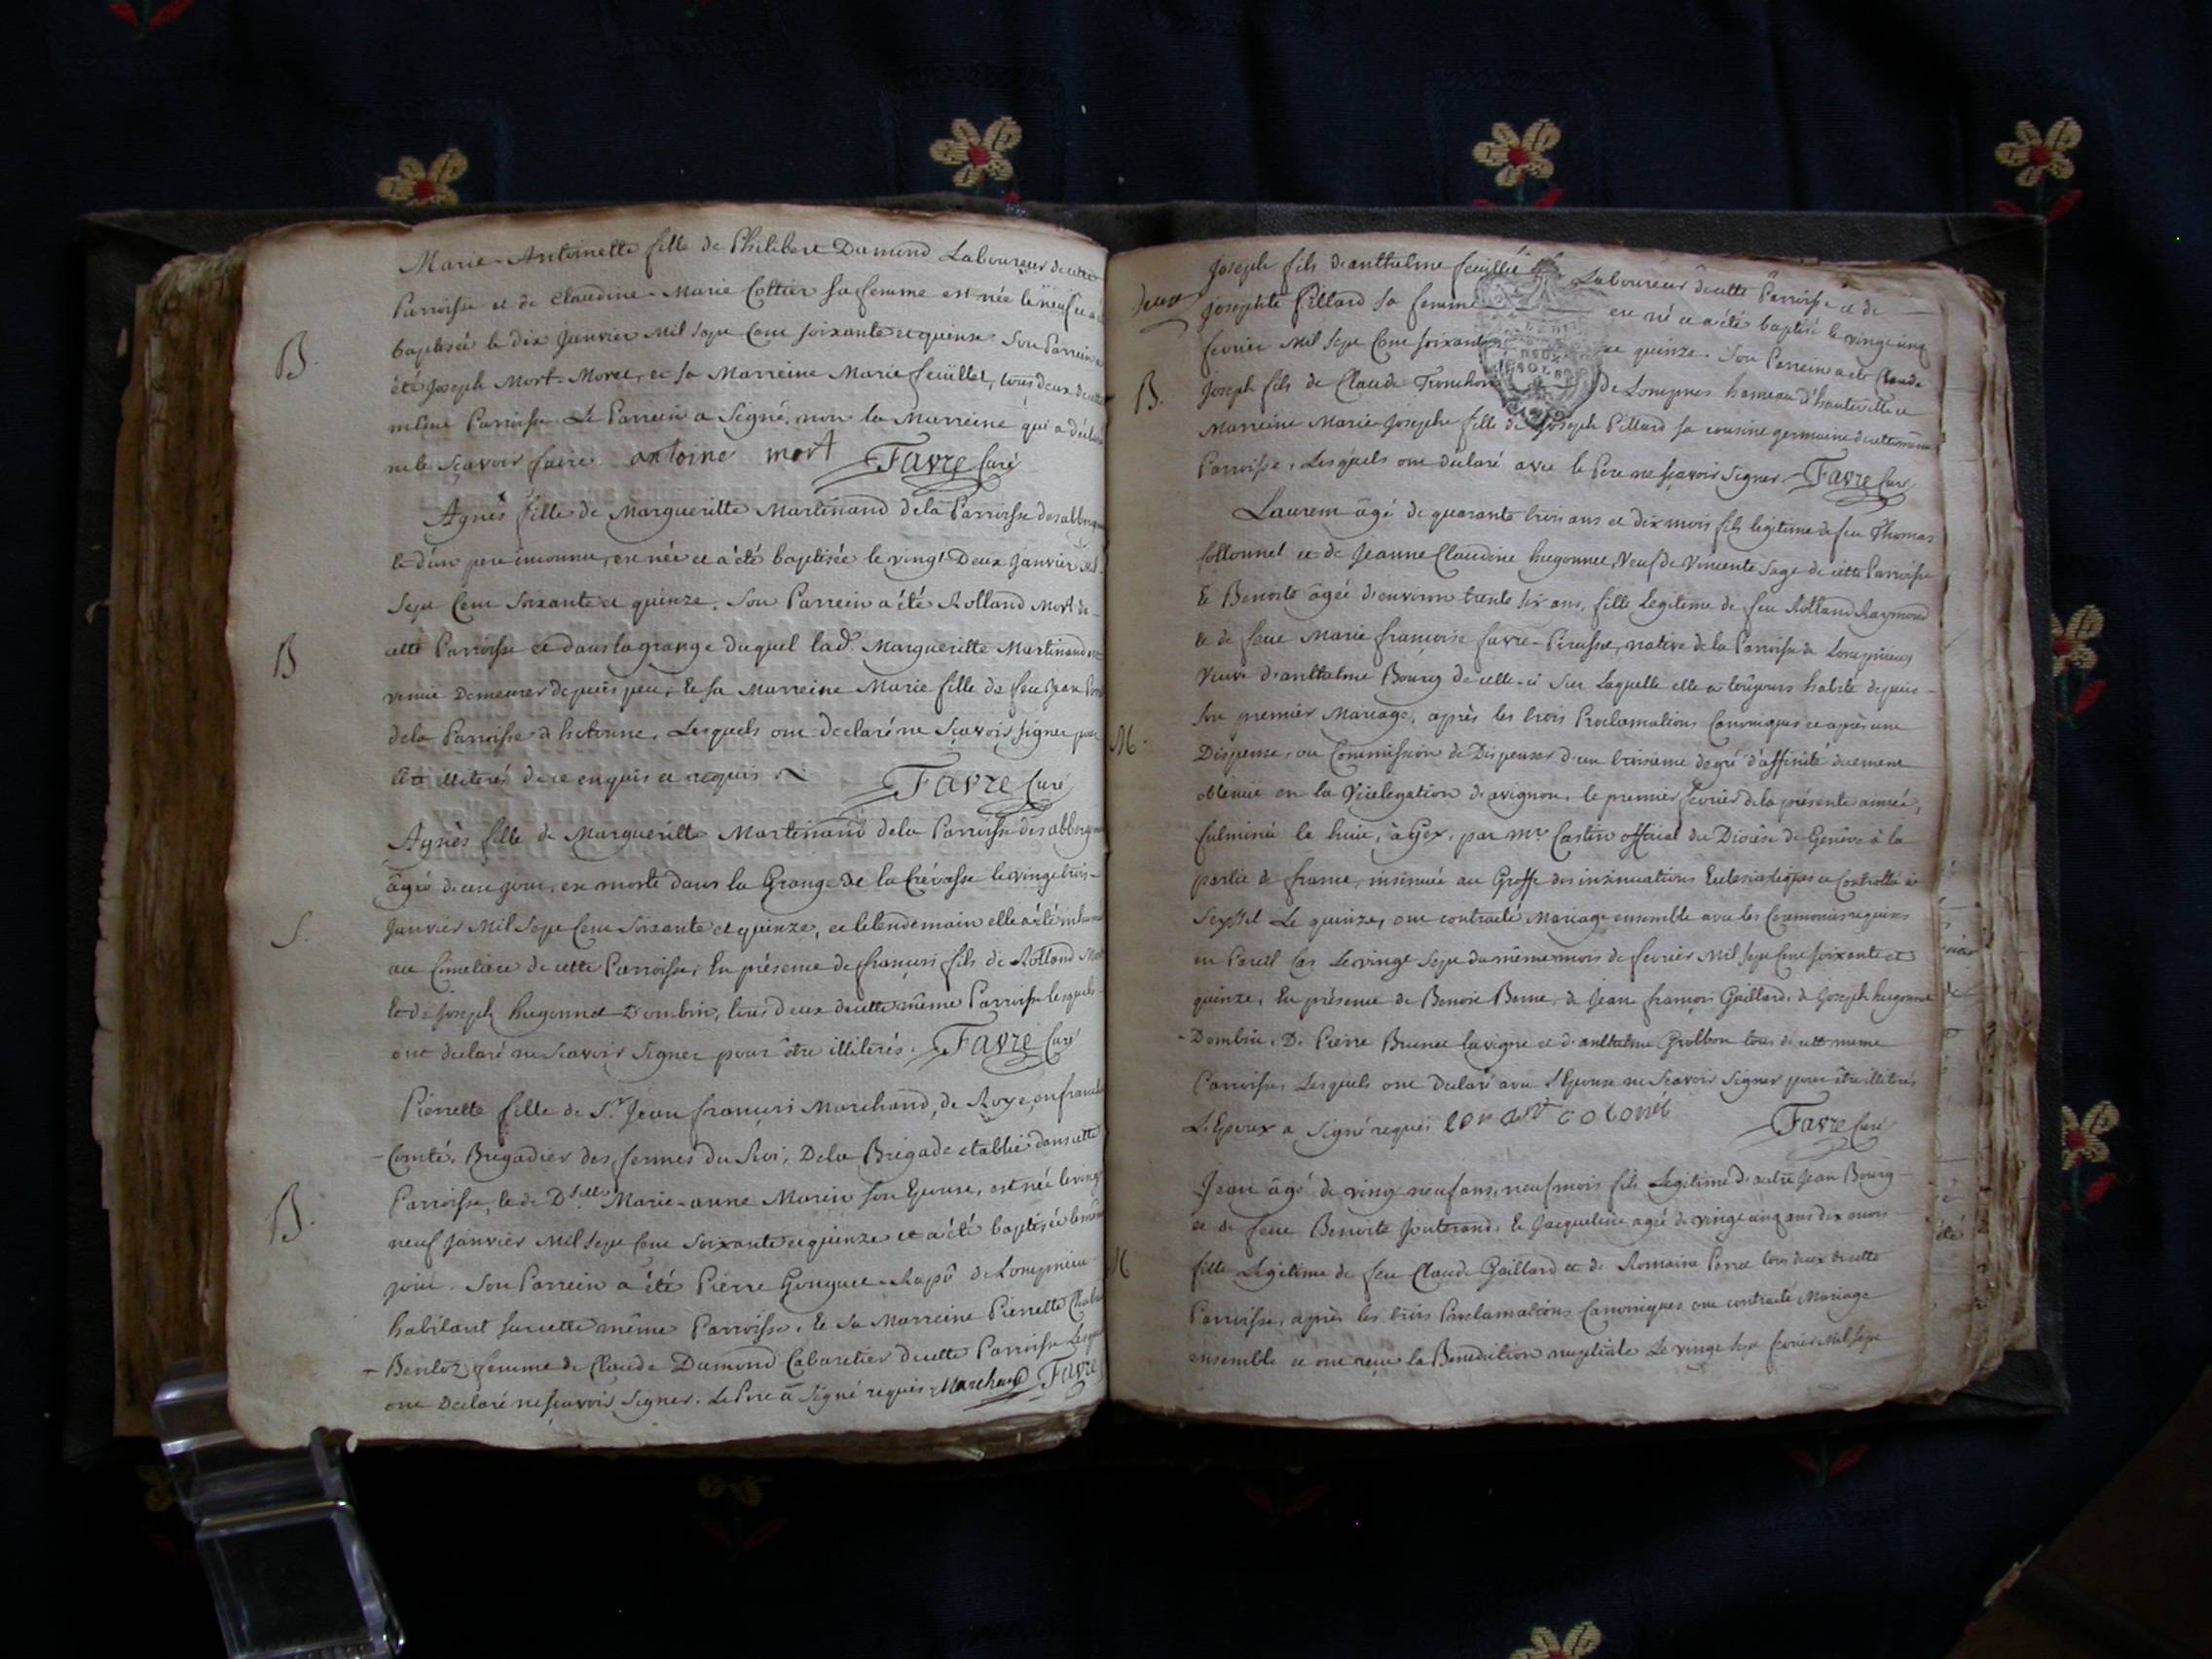 Marie-Antoinette fille de Philibert Dumond Laboureur de cette
Parroisse et de Claudine-Marie Cottier sa femme est née le neuf et a
B.
baptisée le dix Janvier Mil Sept Cent soixante et quinze. Son Parrein a
été Joseph Mort-Moret, et sa Marreine Marie feuillet, tous deux de cette
même Parroisse. Le Parrein a Signé, non la Marreine qui a déclaré
ne le Scavoir faire. antoine mort Favre Curé
Agnès fille de Margueritte Martinand de la Parroisse des abbergem
et d'un pere inconnu, est née et a été baptisée le vingt Deux Janvier Mil
Sept Cent Soixante et quinze. Son Parrein a été Rolland Mort de
B
cette Parroisse et dans la grange duquel lad.e Margueritte Martinand est
venue Demeurer depuis peu, Et sa Marreine Marie fille de feu Jean
de la Parroisse d'hotonne, Lesquels ont declaré ne Scavoir signer pour
être illiterés de ce enquis et requis. Favre Curé
Agnès fille de Margueritte Martinand de la Parroisse des abbergem
âgée d'un jour, est morte dans la Grange de la Crévasse le vingt trois
S.
Janvier Mil Sept Cent Soixante et quinze, et le lendemain elle a été inhumée
au Cimetiere de cette Parroisse, En présence de françois fils de Rolland Mort
et de Joseph hugonnet-Dombin, tous deux de cette même Parroisse lesquels
ont declaré ne Scavoir Signer pour être illiterés. Favre Curé
Pierrette fille de S.r Jean françois Marchand, de Roye, en franche
-Comté, Brigadier des fermes du Roi, De la Brigade etablie dans cette
B.
Parroisse, Et de D.selle Marie-anne Morin son Epouse, est née le vingt
neuf Janvier Mil Sept Cent Soixante et quinze et a été baptisée le même
jour. Son Parrein a été Pierre Gonguet-Rapô de Lompnieu
habitant sur cette même Parroisse, Et Sa Marreine Pierrette
-Bentoz femme de Claude Dumond Cabaretier de cette Parroisse Lesquels
ont Declaré ne scavoir Signer. Le Pere a Signé requis. Marchand Favre
Joseph fils d'anthelme feuillet Laboureur de cette Parroisse et de
deux
Josephte Pillard sa femme est né et a été baptisé le vingt cinq
fevrier Mil Sept Cent soixante et quinze. Son Parrein a été Claude
B.
Joseph fils de Claude Tronchon de Lompnes hameau d'hauteville et
Marreine Marie-Josephe fille de Joseph Pillard sa cousine germaine de cette même
Parroisse, Lesquels ont déclaré avec le Pere ne scavoir Signer Favre Curé
Laurent âgé de quarante trois ans et dix mois fils legitime de feu Thomas
Collonnet et de Jeanne Claudine hugonnet, Veuf de Vincente Sage de cette Parroisse
Et Benoite âgée d'environ trente six ans, fille Legitime de feu Rolland Raymond
et de feue Marie françoise favre-Perusset, native de la Parroisse de Lompnieu,
Veuve d'anthelme Bourg de celle-ci Sur Laquelle elle a toûjours habité depuis
son premier Mariage, après les trois Proclamations Canoniques et après une
M.
Dispense, ou Commission de Dispenser d'un troisieme degré d'affinité duement
obtenue en la Vicelegation d'avignon, le premier fevrier de la présente année,
fulminée le huit, à Gex, par m.r Castin official du Diocèse de Genève à la
partie de france, insinuée au Greffe des insinuations Ecclesiastiques et Controllée à
Seyssel Le quinze, ont contracté Mariage ensemble avec les Ceremonies requises
en Pareil Cas Le vingt Sept du même mois de fevrier Mil Sept Cent soixante et
quinze, En présence de Benoit Berne, de Jean françois Gaillard, de Joseph hugonnet
-Dombin, De Pierre Brunet lavigne et d'anthelme Grobbon tous de cette meme
Parroisse, Lesquels ont declaré avec L'Epouse ne Scavoir Signer pour être illiterés
L'Epoux a Signé requis loran colonét Favre Curé
Jean âgé de vingt neuf ans, neuf mois fils Legitime d'autre Jean Bourg
et de feue Benoite Joutrand, Et Jacqueline agée de vingt cinq ans dix mois
M
fille Legitime de feu Claude Gaillard et de Romaine Perret tous deux de cette
Parroisse, après les trois Proclamations Canoniques ont contracté Mariage
ensemble et ont reçu la Benediction nuptiale Le vingt Sept fevrier Mil Sept